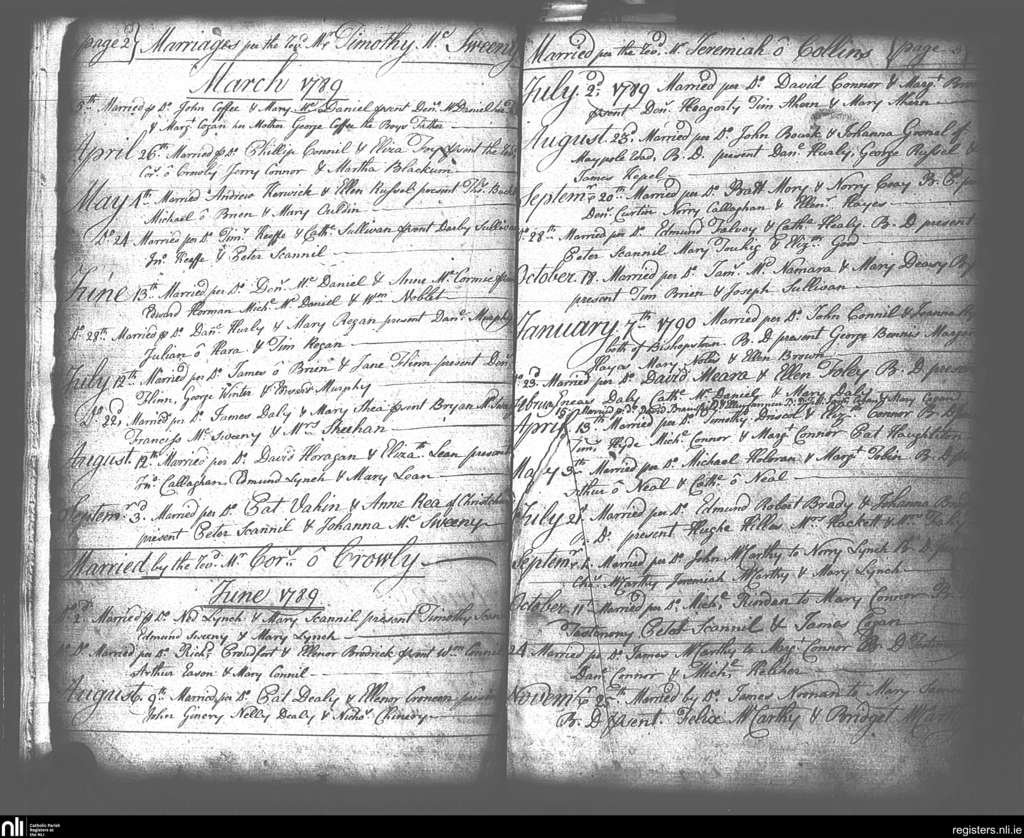 page 2d} Marriages per the Revd. Mr Timothy Mc Sweeny
March 1789
5th Married p Do. John Coffee & Mary Mc Daniel psent Danl. Mc Daniel
& Margt. Cogan her Mother George Coffee the Boys Father
April 26th Married p Do. Phillip Connil & Eliza psent the Revd.
Cors. ô Crowly Jerry Connor & Martha Blackum
May 1th Married Andrew Kerwick & Ellen Russel present Thos.
Michael ô Brien & Mary Culdin
Do. 24 Married per Do. Timy. Keeffe & Cathe. Sullivan psent Darby Sullivan
Jno. Keeffe & Peter Scannil
June 13th Married per Do. Denis. Mc Daniel & Anne Mc Cormic psent
Edward Horman Michl. Mc Daniel & Wm. Noblet
Do. 28th Married p Do. Danl. Hurly & Mary Regan present Danl. Murphy
Julian ô Hara & Tim Hogan
July 12th Married per Do. James ô Brien & Jane Flinn present Den.
Flinn, George Winter & Murphy
Do. 22d Married per Do. James Daly & Mary Shea psent Bryan Mc
Franciss Mc Sweeny & Mrs Sheehan
August 12th Married per Do. David Horagan & Elizath. Lean present
Jno. Callaghan Edmund Lynch & Mary Lean
Septemr. 3d. Married per Do. Pat Vahin & Anne Rea of
present Peter Scannil & Johanna Mc Sweeny
Married by the Revd. Mr Cors. ô Crowly
June 1789
2d. Married p Do. Ned Lynch & Mary Scannil present Timothy
Edmund Sweeny & Mary Lynch
Do. Do. Married per Do. Richd. Crawford & Ellenor Brodrick psent Wm. Connil
Arthur Eason & Mary Connil
August 9th Married per Do. Pat Dealy & Ellenor present
John Ginery Nelly Dealy & Nichos. Chinery
Married per the Revd. Mr Jeremiah ô Collins {page
July 2d. 1789 Married per Do. David Connor & Margt.
psent Den. Heagerly Tim Ahern & Mary Ahern
August 23d. Married per Do. John Bouak & Johanna of
Maypole Road, B. D. present Danl. Hurly, George Russel &
James Kepel
Septemr. 20th Married per Do. Bratt Mory & Norry Cray B. D.
Den. Curtin Norry Callaghan & Ellenr. Hayes
Do. 28th Married per Do. Edmund Falvey & Cathe. Healy B. D present
Peter Scannil Mary Touhig & Elizth.
October 18 Married per Do. Jams. Mc Namara & Mary Deasy
present Tim Brien & Joseph Sullivan
January 7th 1790 Married per Do. John Connil & Joanna
both of Bishopstown. B. D present George Bennis
Hays Mary Noles & Ellen Brown
Do. 23. Married per Do. David Meara & Ellen Foley B. D present
Eneas Daly Cathe. Mc Daniel & Mary Daly
Februry
April 13th Married per Do. Timothy Driscol & Elizth. Connor B. D
Timy. Hyde Michl. Connor & Margt. Connor Pat Haughliton
May 3th Married per Do. Michael Holoran & Margt. Tobin B. D
Arthur ô Neal & Cathe. ô Neal
July 21 Married per Do. Edmund Robert Brady & Johanna
B. D. present Hughe Hilles Mrs. Hackett & Mrs.
Septemr. Married per Do. John McCarthy to Norry Lynch B. D
Chas. McCarthy Jeremiah McCarthy & Mary Lynch
October 11th Married per Do. Michl. Rierdan to Mary Connor B. D
Testemony Peter Scannil & James Egan
24 Married per Do. James McCarthy to Margt. Connor B. D
Dan Connor & Michl. Keleher
Novemr. 25th Married by Do. James Norman to Mary
B. D psent. Felix McCarthy & Bridget McCarthy
nli Catholic Parish
Registers at
the NLI
registers.nli.ie